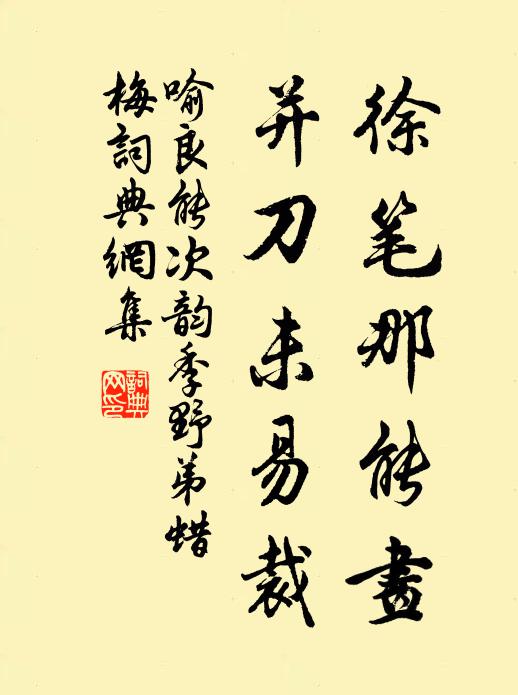 徐笔那能畫
并刀未易裁
喻良能次韵季野弟蜡
梅詞典網集
詞典网印